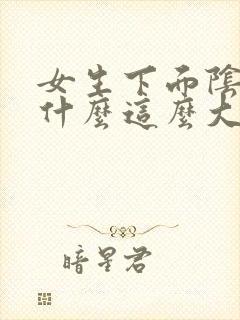 女生下面陰
什麼這麼大
暗星君